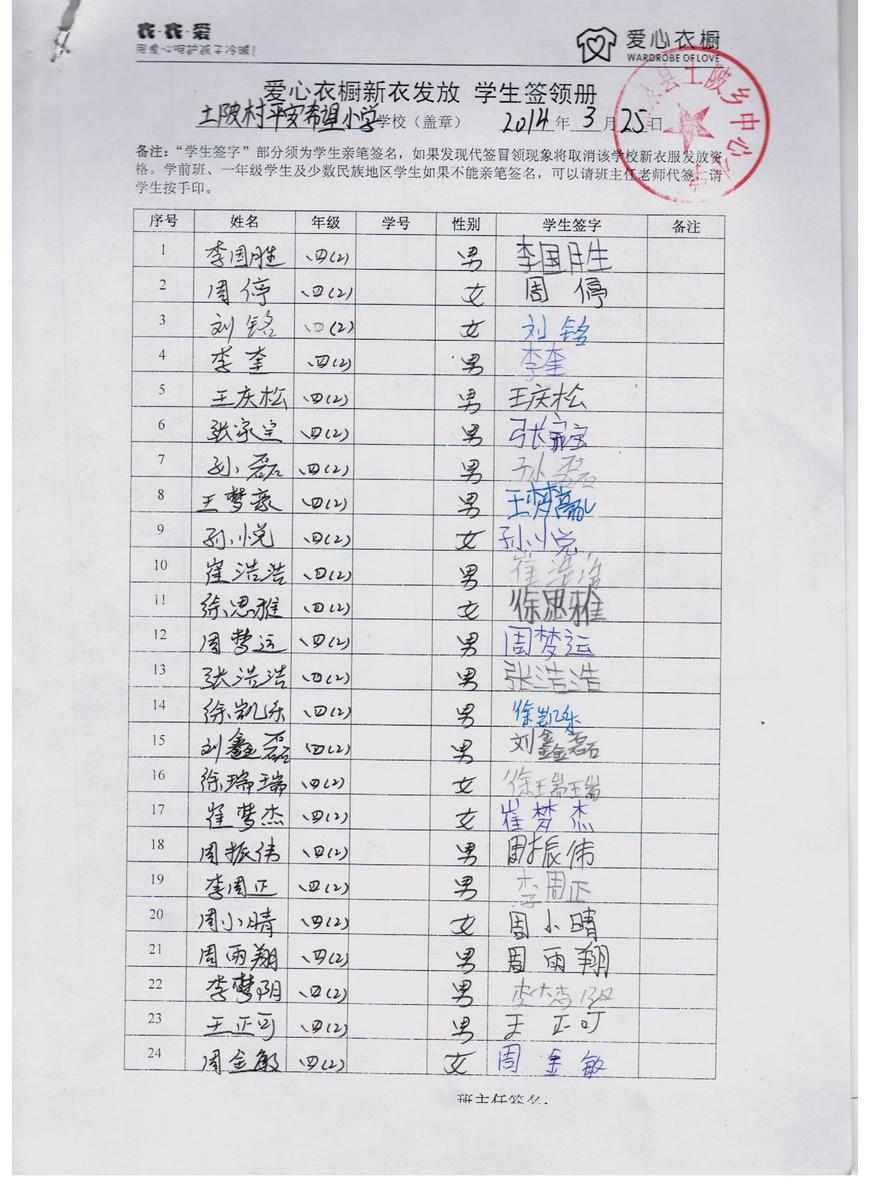 衣·衣·爱
用爱心呵护孩子冷暖!
爱心衣橱
WARDROBE OF LOVE
爱心衣橱新衣发放 学生签领册
土陂村平安希望小学 学校（盖章） 2014 年 3 月 25 日
县土陂乡中心小学
备注：“学生签字”部分须为学生亲笔签名，如果发现代签冒领现象将取消该学校新衣服发放资
格。学前班、一年级学生及少数民族地区学生如果不能亲笔签名，可以请班主任老师代签，请
学生按手印。
序号 姓名 年级 学号 性别 学生签字 备注
1 李国胜 四(2) 男 李国胜
2 周停 四(2) 女 周停
3 刘铭 四(2) 女 刘铭
4 李奎 四(2) 男 李奎
5 王庆松 四(2) 男 王庆松
6 张家宝 四(2) 男 张家宝
7 孙磊 四(2) 男 孙磊
8 王梦豪 四(2) 男 王梦豪
9 孙小悦 四(2) 女 孙小悦
10 崔浩浩 四(2) 男 崔浩浩
11 徐思雅 四(2) 女 徐思雅
12 周梦运 四(2) 男 周梦运
13 张浩浩 四(2) 男 张浩浩
14 徐凯乐 四(2) 男 徐凯乐
15 刘鑫磊 四(2) 男 刘鑫磊
16 徐瑞瑞 四(2) 女 徐瑞瑞
17 崔梦杰 四(2) 女 崔梦杰
18 周振伟 四(2) 男 周振伟
19 李周正 四(2) 男 李周正
20 周小晴 四(2) 女 周小晴
21 周雨翔 四(2) 男 周雨翔
22 李梦阴 四(2) 男
23 王正可 四(2) 男 王正可
24 周金敏 四(2) 女 周金敏
班主任签名: